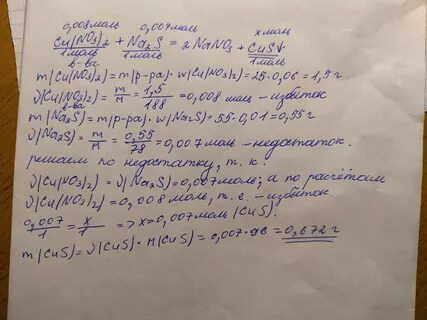 0,008моль 0,007моль x моль
Cu(NO3)2 + Na2S = 2NaNO3 + CuS↓
1моль 1моль 1моль
в-ва
m(Cu(NO3)2) = m(р-ра)·w(Cu(NO3)2) = 25·0,06 = 1,5 г
ν(Cu(NO3)2) = m/M = 1,5/188 = 0,008 моль – избыток
в-ва
m(Na2S) = m(р-ра)·w(Na2S) = 55·0,01 = 0,55 г
ν(Na2S) = m/M = 0,55/78 = 0,007 моль – недостаток.
решаем по недостатку, т. к.
ν(Cu(NO3)2) = ν(Na2S) = 0,007моль; а по расчётам
ν(Cu(NO3)2) = 0,008моль, т. е. – избыток
0,007/1 = x/1 => x = 0,007моль (CuS)
m(CuS) = ν(CuS)·M(CuS) = 0,007·96 = 0,672 г